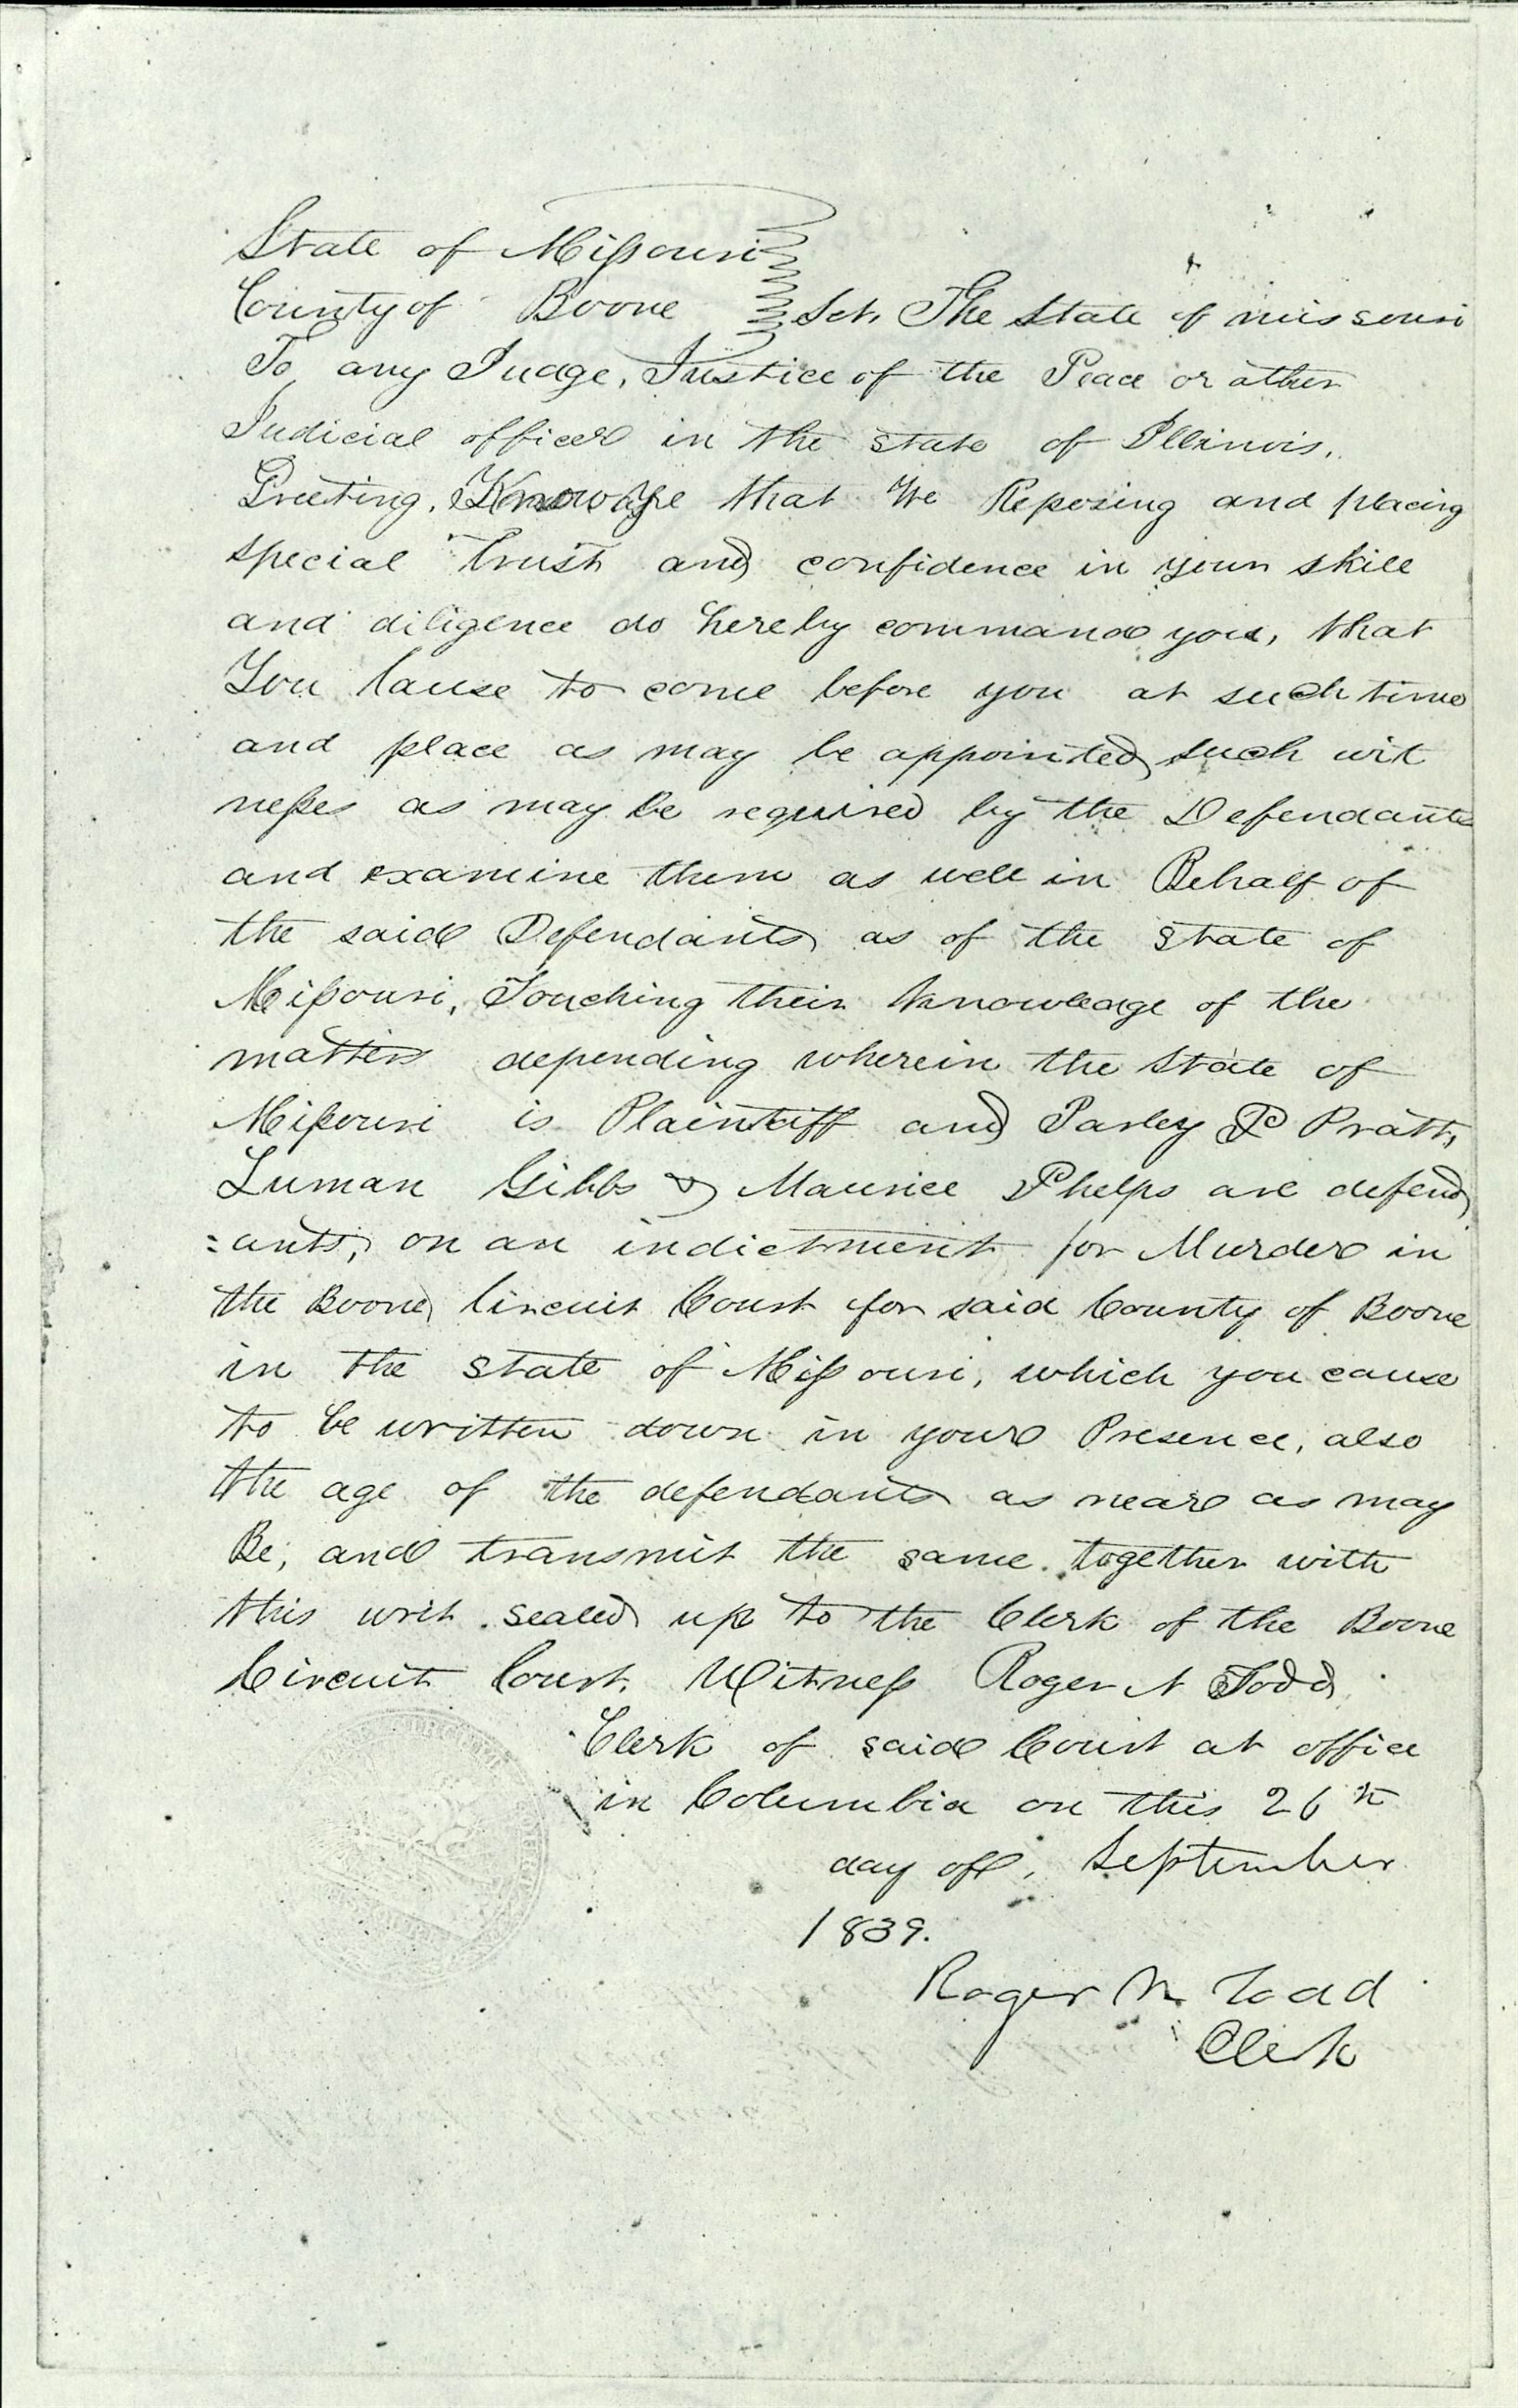 State of Missouri
County of Boone } Sct, The State of missouri
To any Judge, Justice of the Peace or other
Judicial officer in the state of Illinois,
Greeting, Know ye that We Reposing and placing
special trust and confidence in your skill
and diligence do hereby command you, that
You Cause to come before you at such time
and place as may be appointed such wit
nesses as may be required by the Defendants
and examine them as well in Behalf of
the said Defendants as of the state of
Missouri, Touching their knowledge of the
matters depending wherein the State of
Missouri is Plaintiff and Parley P Pratt,
Luman Gibbs & Maurice Phelps are defend
=ants, on an indictment for Murder in
the Boone Circuit Court for said County of Boone
in the state of Missouri, which you cause
to be written down in your Presence, also
the age of the defendants as near as may
Be, and transmit the same together with
this writ sealed up to the Clerk of the Boone
Circuit Court. Witness Roger N Todd
Clerk of said Court at office
in Columbia on this 26th
day of, September
1839.
Roger N Todd
Clerk